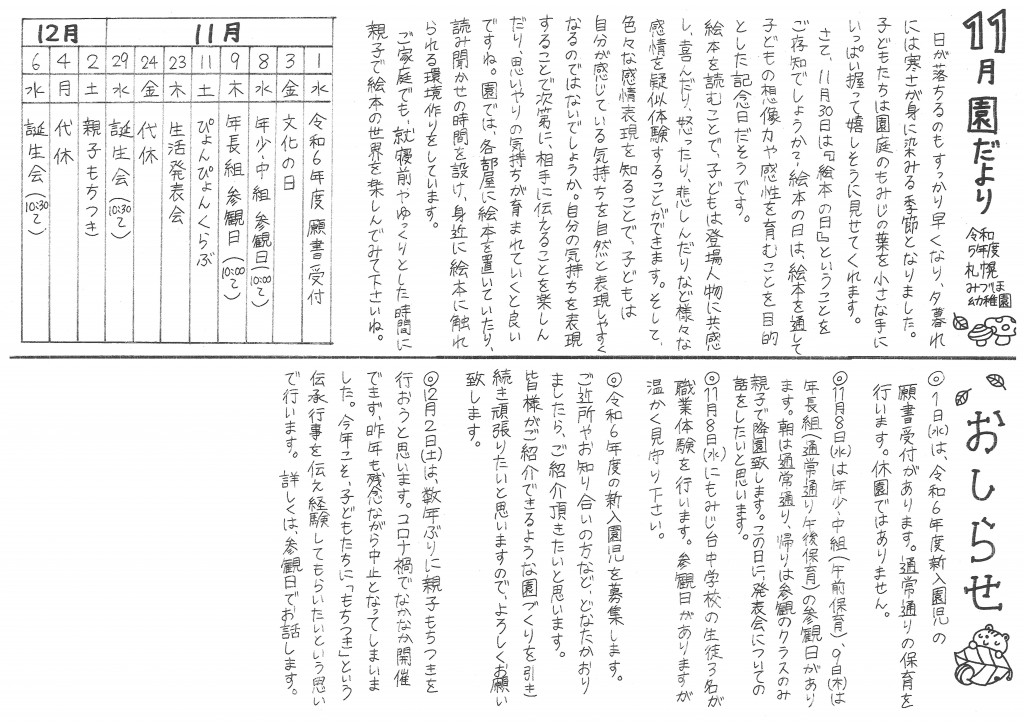 11月園だより
令和
5年度
札幌
みづほ
幼稚園
日が落ちるのもすっかり早くなり、夕暮れ
には寒さが身に染みる季節となりました。
子どもたちは園庭のもみじの葉を小さな手に
いっぱい握って嬉しそうに見せてくれます。
さて、11月30日は『絵本の日』ということを
ご存知でしょうか？絵本の日は、絵本を通して
子どもの想像力や感性を育むことを目的
とした記念日だそうです。
絵本を読むことで、子どもは登場人物に共感
し、喜んだり、怒ったり、悲しんだりなど様々な
感情を疑似体験することができます。そして、
色々な感情表現を知ることで、子どもは
自分が感じている気持ちを自然と表現しやすく
なるのではないでしょうか。自分の気持ちを表現
することで次第に、相手に伝えることを楽しん
だり、思いやりの気持ちが育まれていくと良い
ですね。園では、各部屋に絵本を置いていたり、
読み聞かせの時間を設け、身近に絵本に触れ
られる環境作りをしています。
ご家庭でも、就寝前やゆっくりとした時間に
親子で絵本の世界を楽しんでみて下さいね。
11月
1 水 令和6年度 願書受付
3 金 文化の日
8 水 年少・中組 参観日(10:00〜)
9 木 年長組 参観日(10:00〜)
11 土 ぴょんぴょんくらぶ
23 木 生活発表会
24 金 代休
29 水 誕生会(10:30〜)
12月
2 土 親子もちつき
4 月 代休
6 水 誕生会(10:30〜)
おしらせ
◎1日(水)は、令和6年度新入園児の
願書受付があります。通常通りの保育を
行います。休園ではありません。
◎11月8日(水)は年少・中組(午前保育)、9日(木)は
年長組(通常通り午後保育)の参観日があり
ます。朝は通常通り、帰りは参観のクラスのみ
親子で降園致します。この日に、発表会についての
話をしたいと思います。
◎11月8日(水)にもみじ台中学校の生徒3名が
職業体験を行います。参観日がありますが
温かく見守り下さい。
◎令和6年度の新入園児を募集します。
ご近所やお知り合いの方など、どなたかおり
ましたら、ご紹介頂きたいと思います。
皆様がご紹介できるような園づくりを引き
続き頑張りたいと思いますので、よろしくお願い
致します。
◎12月2日(土)は、数年ぶりに親子もちつきを
行おうと思います。コロナ禍でなかなか開催
できず、昨年も残念ながら中止となってしまいま
した。今年こそ、子どもたちに「もちつき」という
伝承行事を伝え経験してもらいたいという思い
で行います。詳しくは、参観日でお話します。